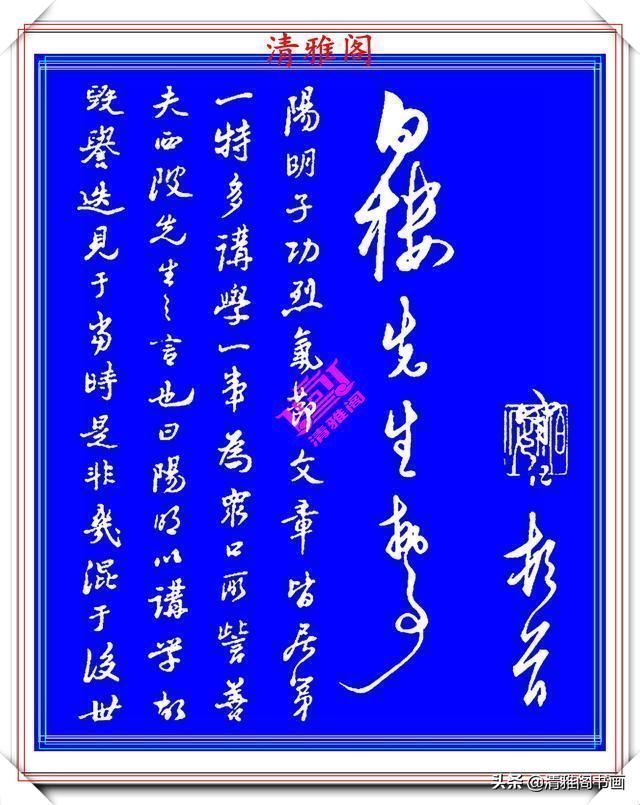 清雅阁
顿首
白楼先生执事
陽明子功烈氣節文章皆居第
一特多講學一事為眾口所訾善
夫西陂先生之言也曰陽明以講学故
毀譽迭見于當時是非幾混于後世
清雅阁
头条 @清雅阁书画